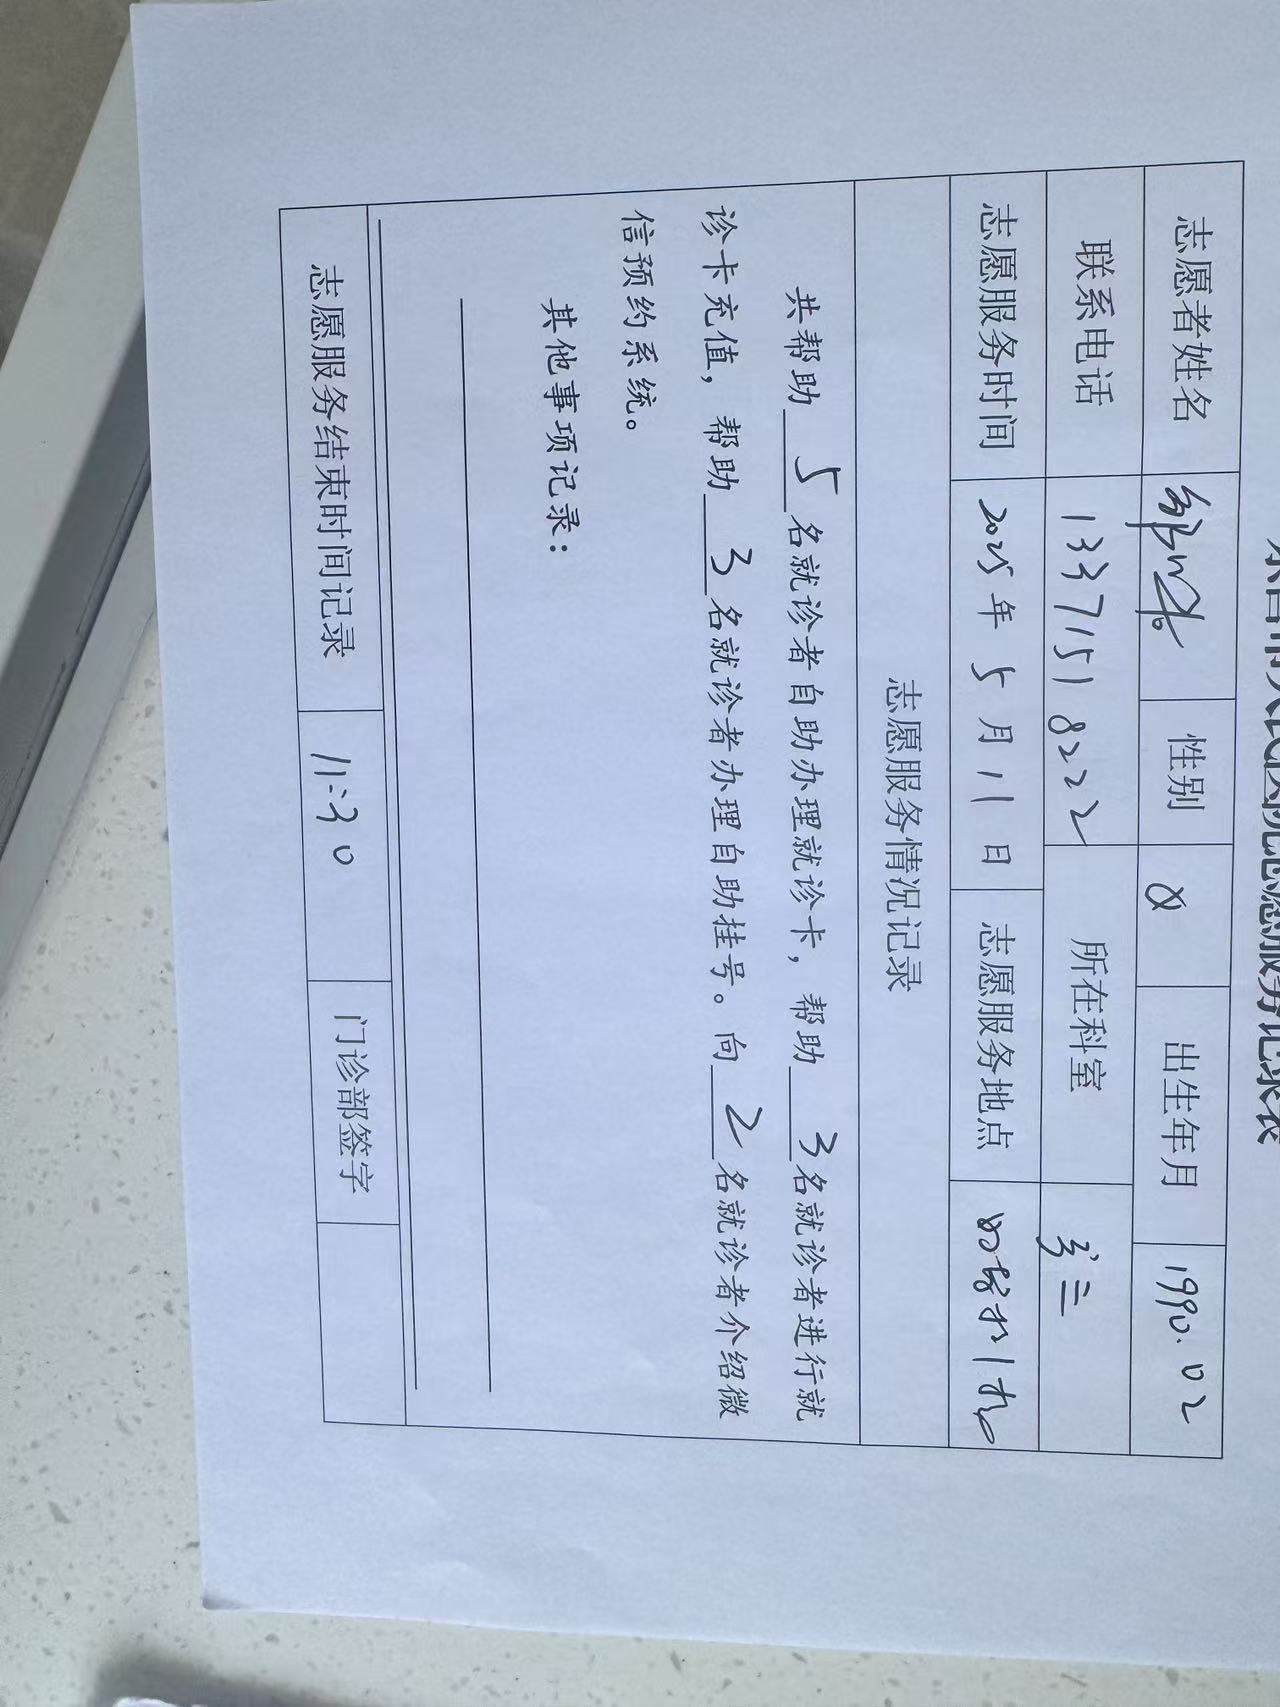 志愿服务记录表
志愿者姓名 性别 女 出生年月 1990.02
联系电话 13371518222 所在科室
志愿服务时间 2025年5月11日 志愿服务地点
志愿服务情况记录
共帮助 5 名就诊者自助办理就诊卡，帮助 3 名就诊者进行就
诊卡充值，帮助 3 名就诊者办理自助挂号。向 2 名就诊者介绍微
信预约系统。
其他事项记录：
志愿服务结束时间记录 11:30 门诊部签字